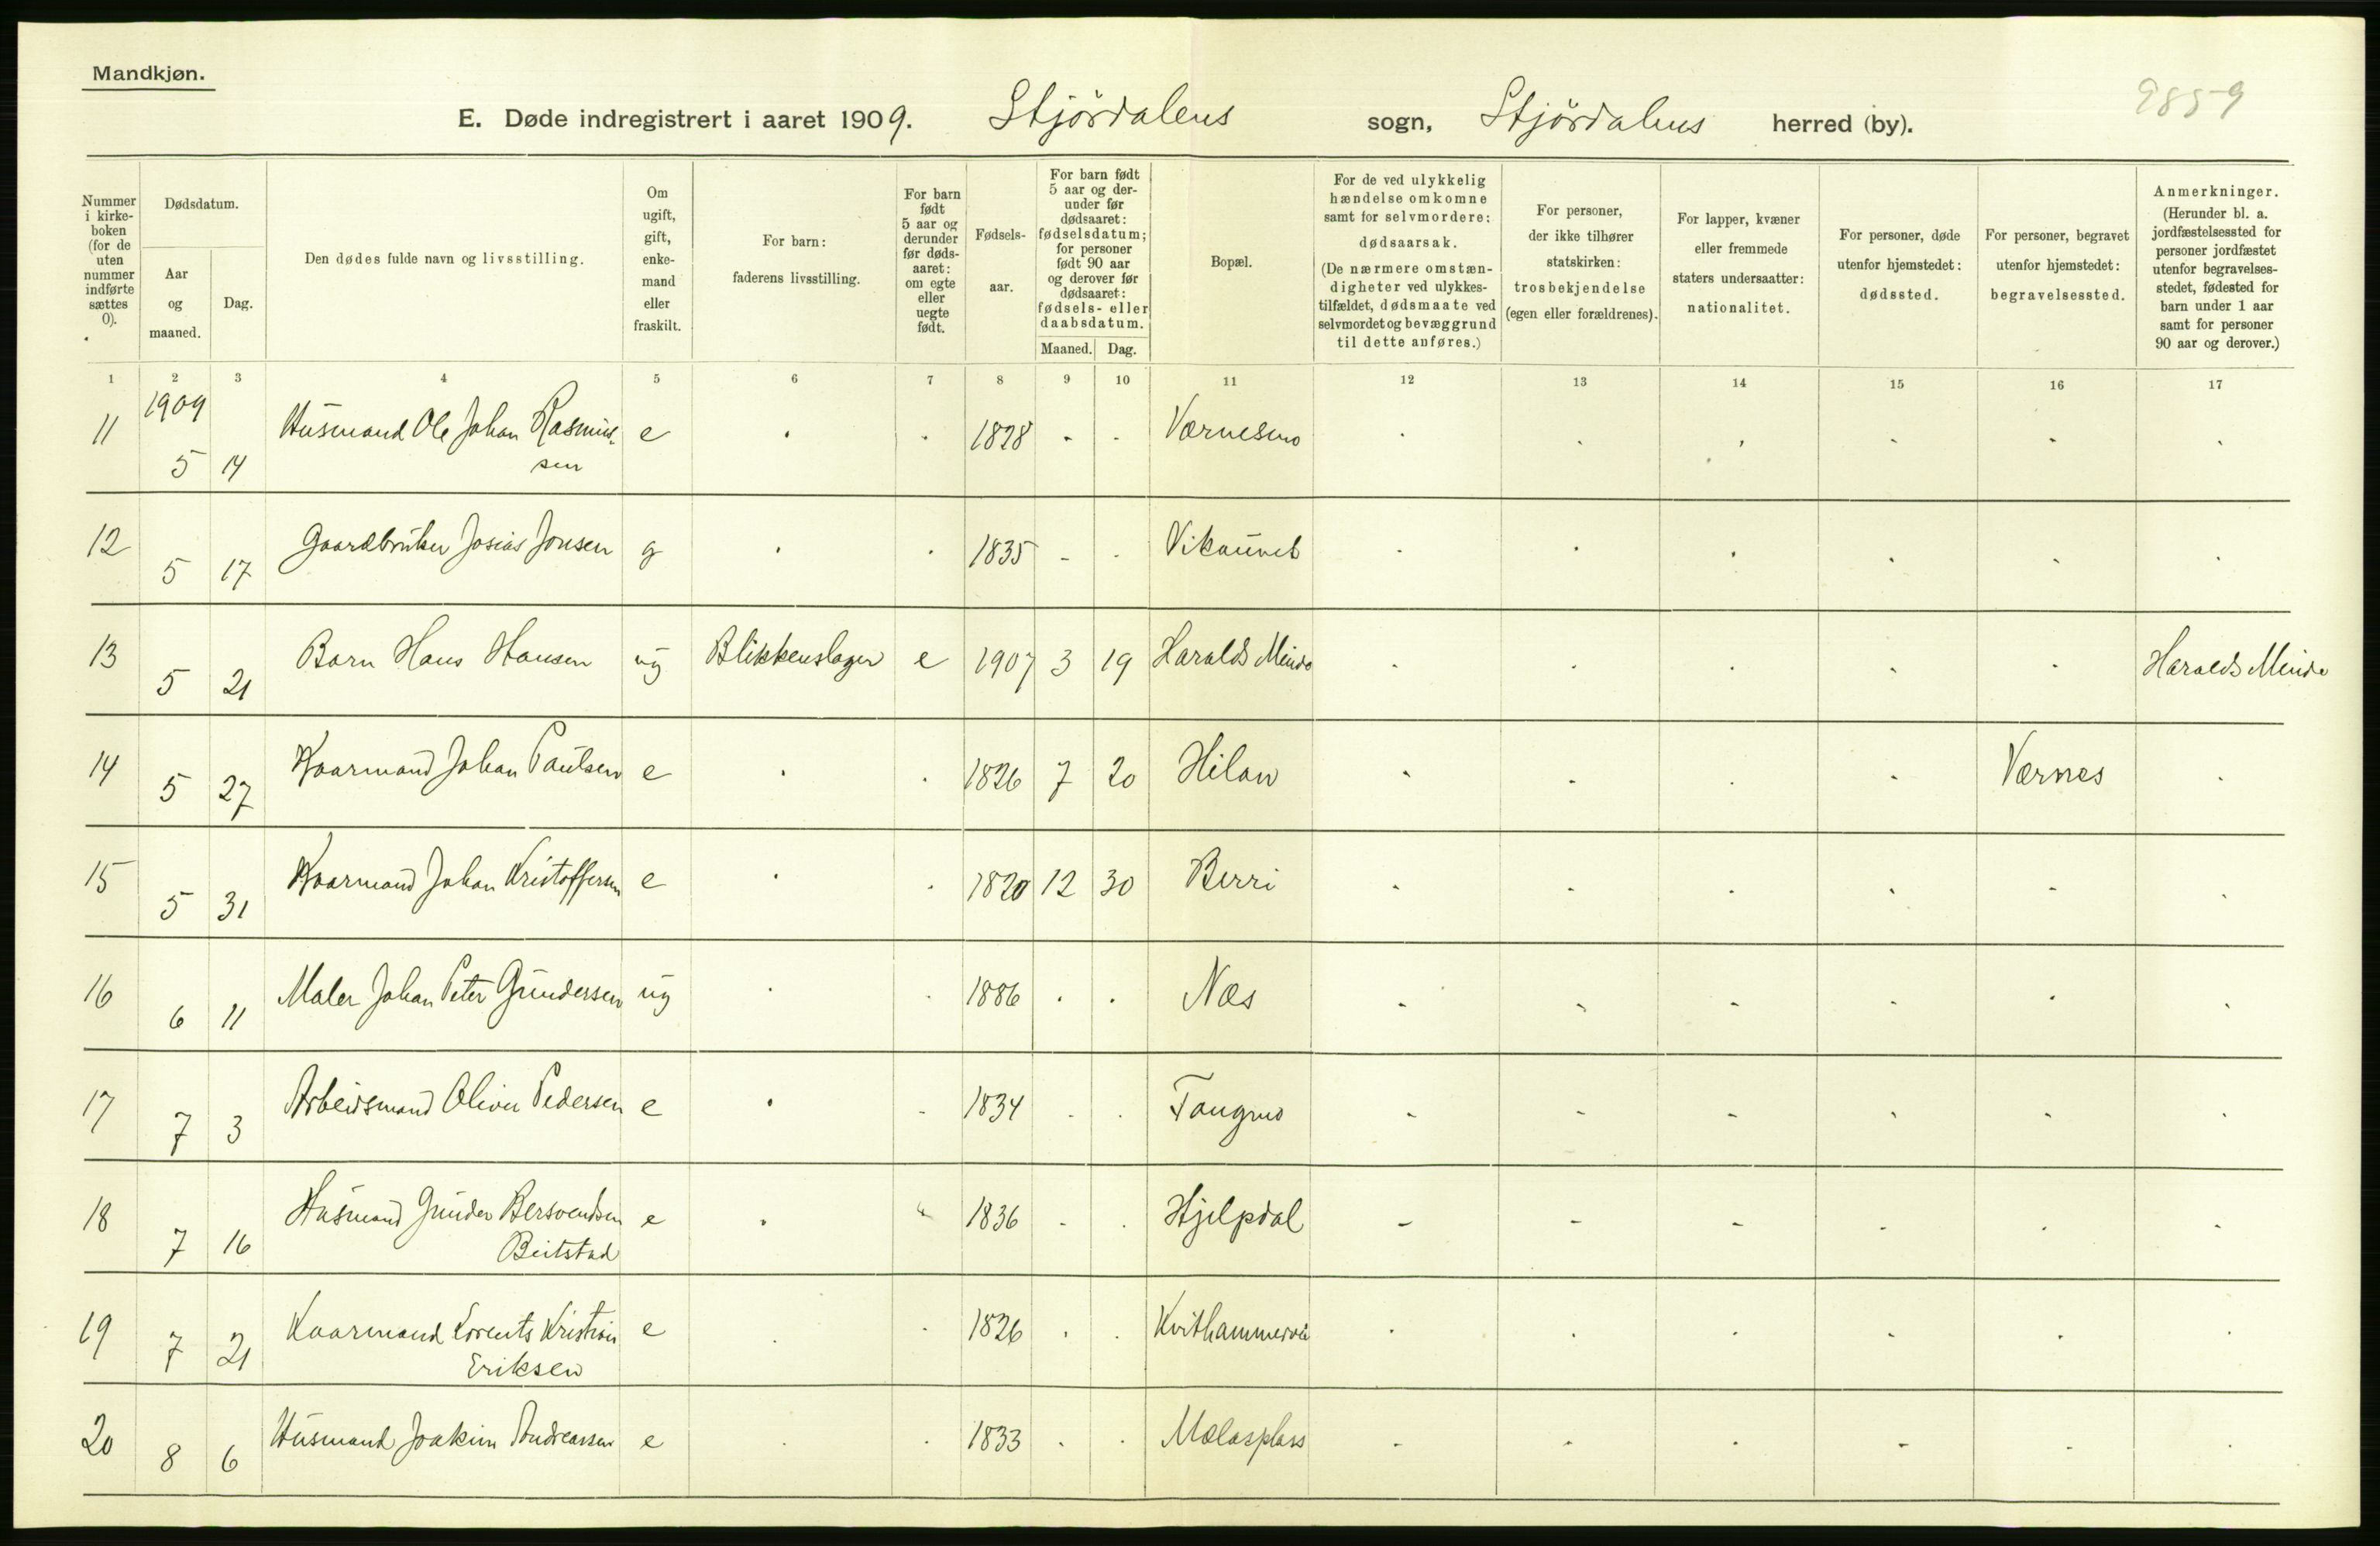 Mandkjøn.
E. Døde indregistrert i aaret 1909. Stjördalens sogn, Stjördalens herred (by).
9859
Nummer i kirke-boken (for de uten nummer indførte sættes 0).
Dødsdatum.
Aar og maaned.
Dag.
Den dødes fulde navn og livsstilling.
Om ugift, gift, enke-mand eller fraskilt.
For barn: faderens livsstilling.
For barn født 5 aar og derunder før døds-aaret: om egte eller uegte født.
Fødsels-aar.
For barn født 5 aar og der-under før dødsaaret: fødselsdatum; for personer født 90 aar og derover før dødsaaret: fødsels- eller daabsdatum.
Maaned. Dag.
Bopæl.
For de ved ulykkelig hændelse omkomne samt for selvmordere: dødsaarsak. (De nærmere omstæn-digheter ved ulykkes-tilfældet, dødsmaate ved selvmordet og bevæggrund til dette anføres.)
For personer, der ikke tilhører statskirken: trosbekjendelse (egen eller forældrenes).
For lapper, kvæner eller fremmede staters undersaatter: nationalitet.
For personer, døde utenfor hjemstedet: dødssted.
For personer, begravet utenfor hjemstedet: begravelsessted.
Anmerkninger. (Herunder bl. a. jordfæstelsessted for personer jordfæstet utenfor begravelses-stedet, fødested for barn under 1 aar samt for personer 90 aar og derover.)
1 2 3 4 5 6 7 8 9 10 11 12 13 14 15 16 17
1909
11 5 14 Husmand Ole Johan Rasmus-sen e 1828 Værnesmo
12 5 17 Gaardbruker Josias Jonsen g 1835 Vikaunet
13 5 21 Barn Hans Hansen ug Blikkenslager e 1907 3 19 Haralds Minde Haralds Minde
14 5 27 Kaarmand Johan Paulsen e 1826 7 20 Hilan Værnes
15 5 31 Kaarmand Johan Kristoffersen e 1820 12 30 Berri
16 6 11 Maler Johan Peter Gundersen ug 1886 Næs
17 7 3 Arbeidsmand Oliver Pedersen e 1834 Tangmo
18 7 16 Husmand Gunder Bersvendsen
Beitstad e 1836 Hjelpdal
19 7 21 Kaarmand Lorents Kristian
Eriksen e 1826 Kvithammer
20 8 6 Husmand Joakim Andreassen e 1833 Mælasplass